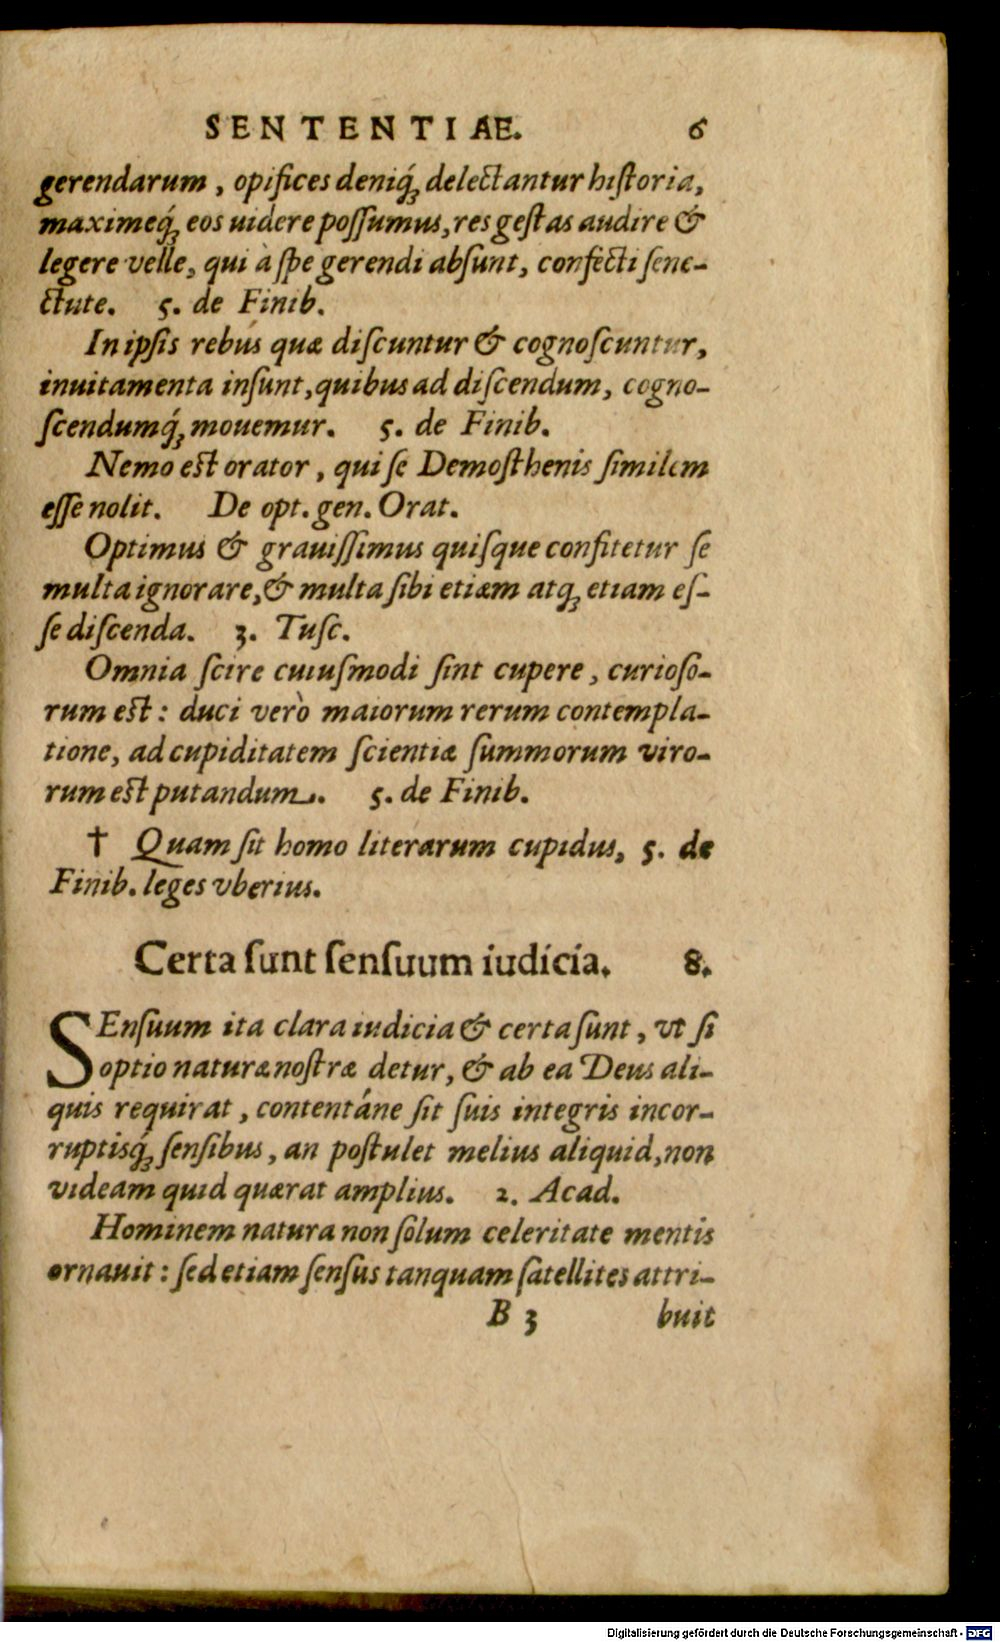 SENTENTIAE. 6
gerendarum, opifices deniq́ꝫ delectantur hiſtoria,
maximeq́ꝫ eos uidere poſſumus, res geſtas audire &
legere velle, qui à ſpe gerendi abſunt, confecti ſene-
ctute. 5. de Finib.
In ipſis rebus quæ diſcuntur & cognoſcuntur,
inuitamenta inſunt, quibus ad diſcendum, cogno-
ſcendumq́ꝫ mouemur. 5. de Finib.
Nemo est orator, qui ſe Demoſthenis ſimilem
eſſe nolit. De opt. gen. Orat.
Optimus & grauiſſimus quiſque confitetur ſe
multa ignorare, & multa ſibi etiam atqꝫ etiam eſ-
ſe diſcenda. 3. Tuſc.
Omnia ſcire cuiuſmodi ſint cupere, curioſo-
rum est: duci verò maiorum rerum contempla-
tione, ad cupiditatem ſcientiæ ſummorum viro-
rum est putandum. 5. de Finib.
† Quam ſit homo literarum cupidus, 5. de
Finib. leges vberius.
Certa ſunt ſenſuum iudicia. 8.
SEnſuum ita clara iudicia & certa ſunt, vt ſi
optio naturæ noſtræ detur, & ab ea Deus ali-
quis requirat, contentáne ſit ſuis integris incor-
ruptisq́ꝫ ſenſibus, an poſtulet melius aliquid, non
videam quid quærat amplius. 2. Acad.
Hominem natura non ſolum celeritate mentis
ornauit: ſed etiam ſenſus tanquam ſatellites attri-
B 3 buit
Digitalisierung gefördert durch die Deutsche Forschungsgemeinschaft - DFG